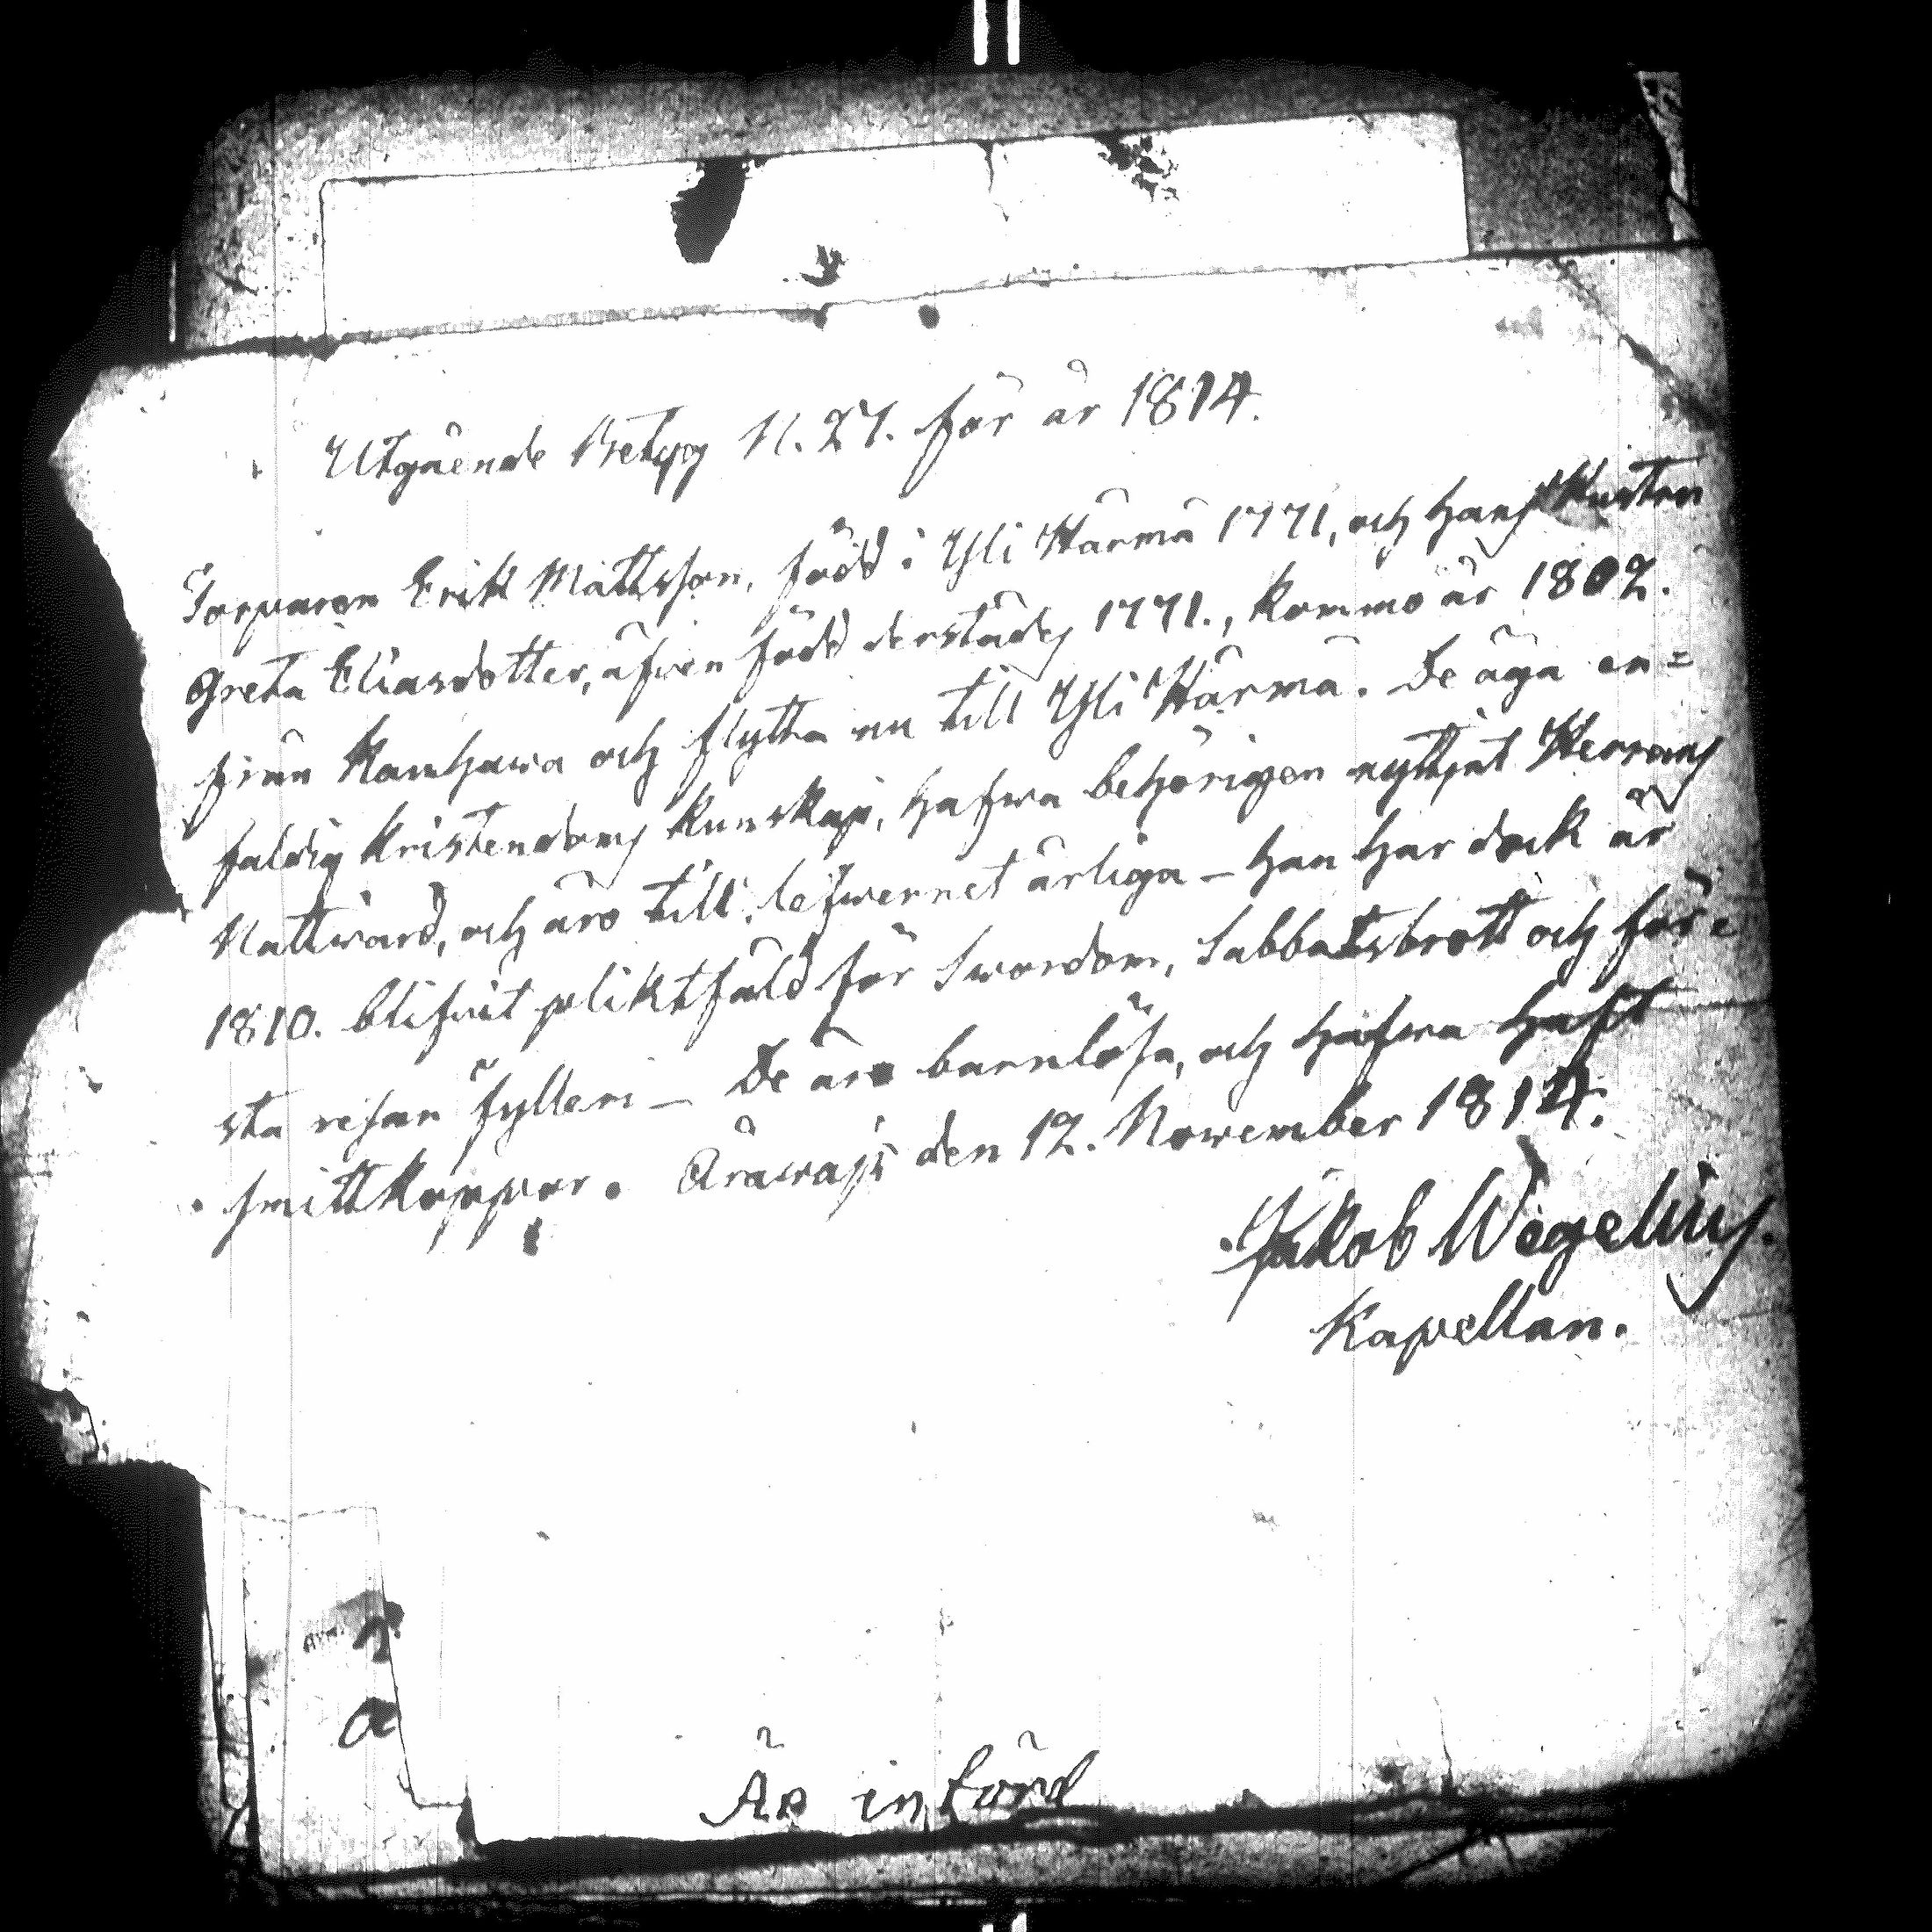 Utgående Betyg N. 27. för år 1814.
Torparen Erik Mattsson, född i Yli Härmä 1771, och hans Hustru
Greta Eliasdotter, äfven född derstädes 1771., kommo år 1802.
från Kauhawa och flytta nu till Yli Härmä. De äga en=
faldig Kristendoms kunskap, hafwa behörigen nyttjat Herrans
Nattward, och äro till lefwernet ärliga – han har dock år
1810. blifwit pliktfäld för Swordom, Sabbatsbrott och för e
sta resan fylleri – De äro barnlösa, och hafwa haft
smittkoppor. Orawais den 12. November 1814.
Jakob Wegelius.
Kapellan.
a
Är införd